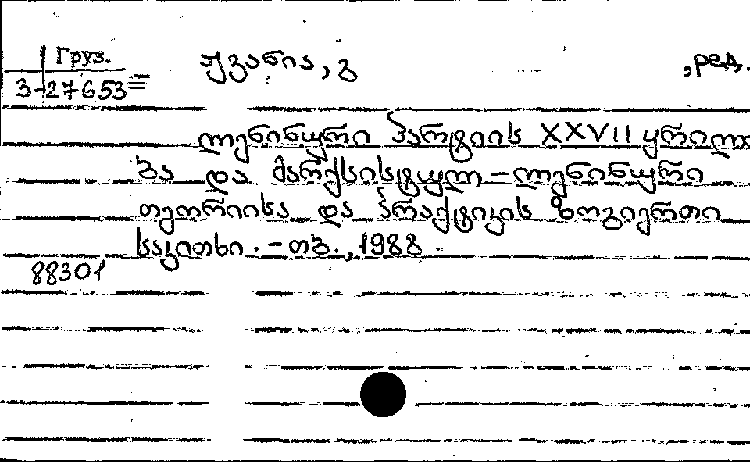 Груз.
3-27653=
ჟვანია, გ ,ред.
ლენინური პარტიის XXVII ყრილო
ბა და მარქსისტულ-ლენინური
თეორიისა და პრაქტიკის ზოგიერთი
საკითხი. - თბ., 1988
88301